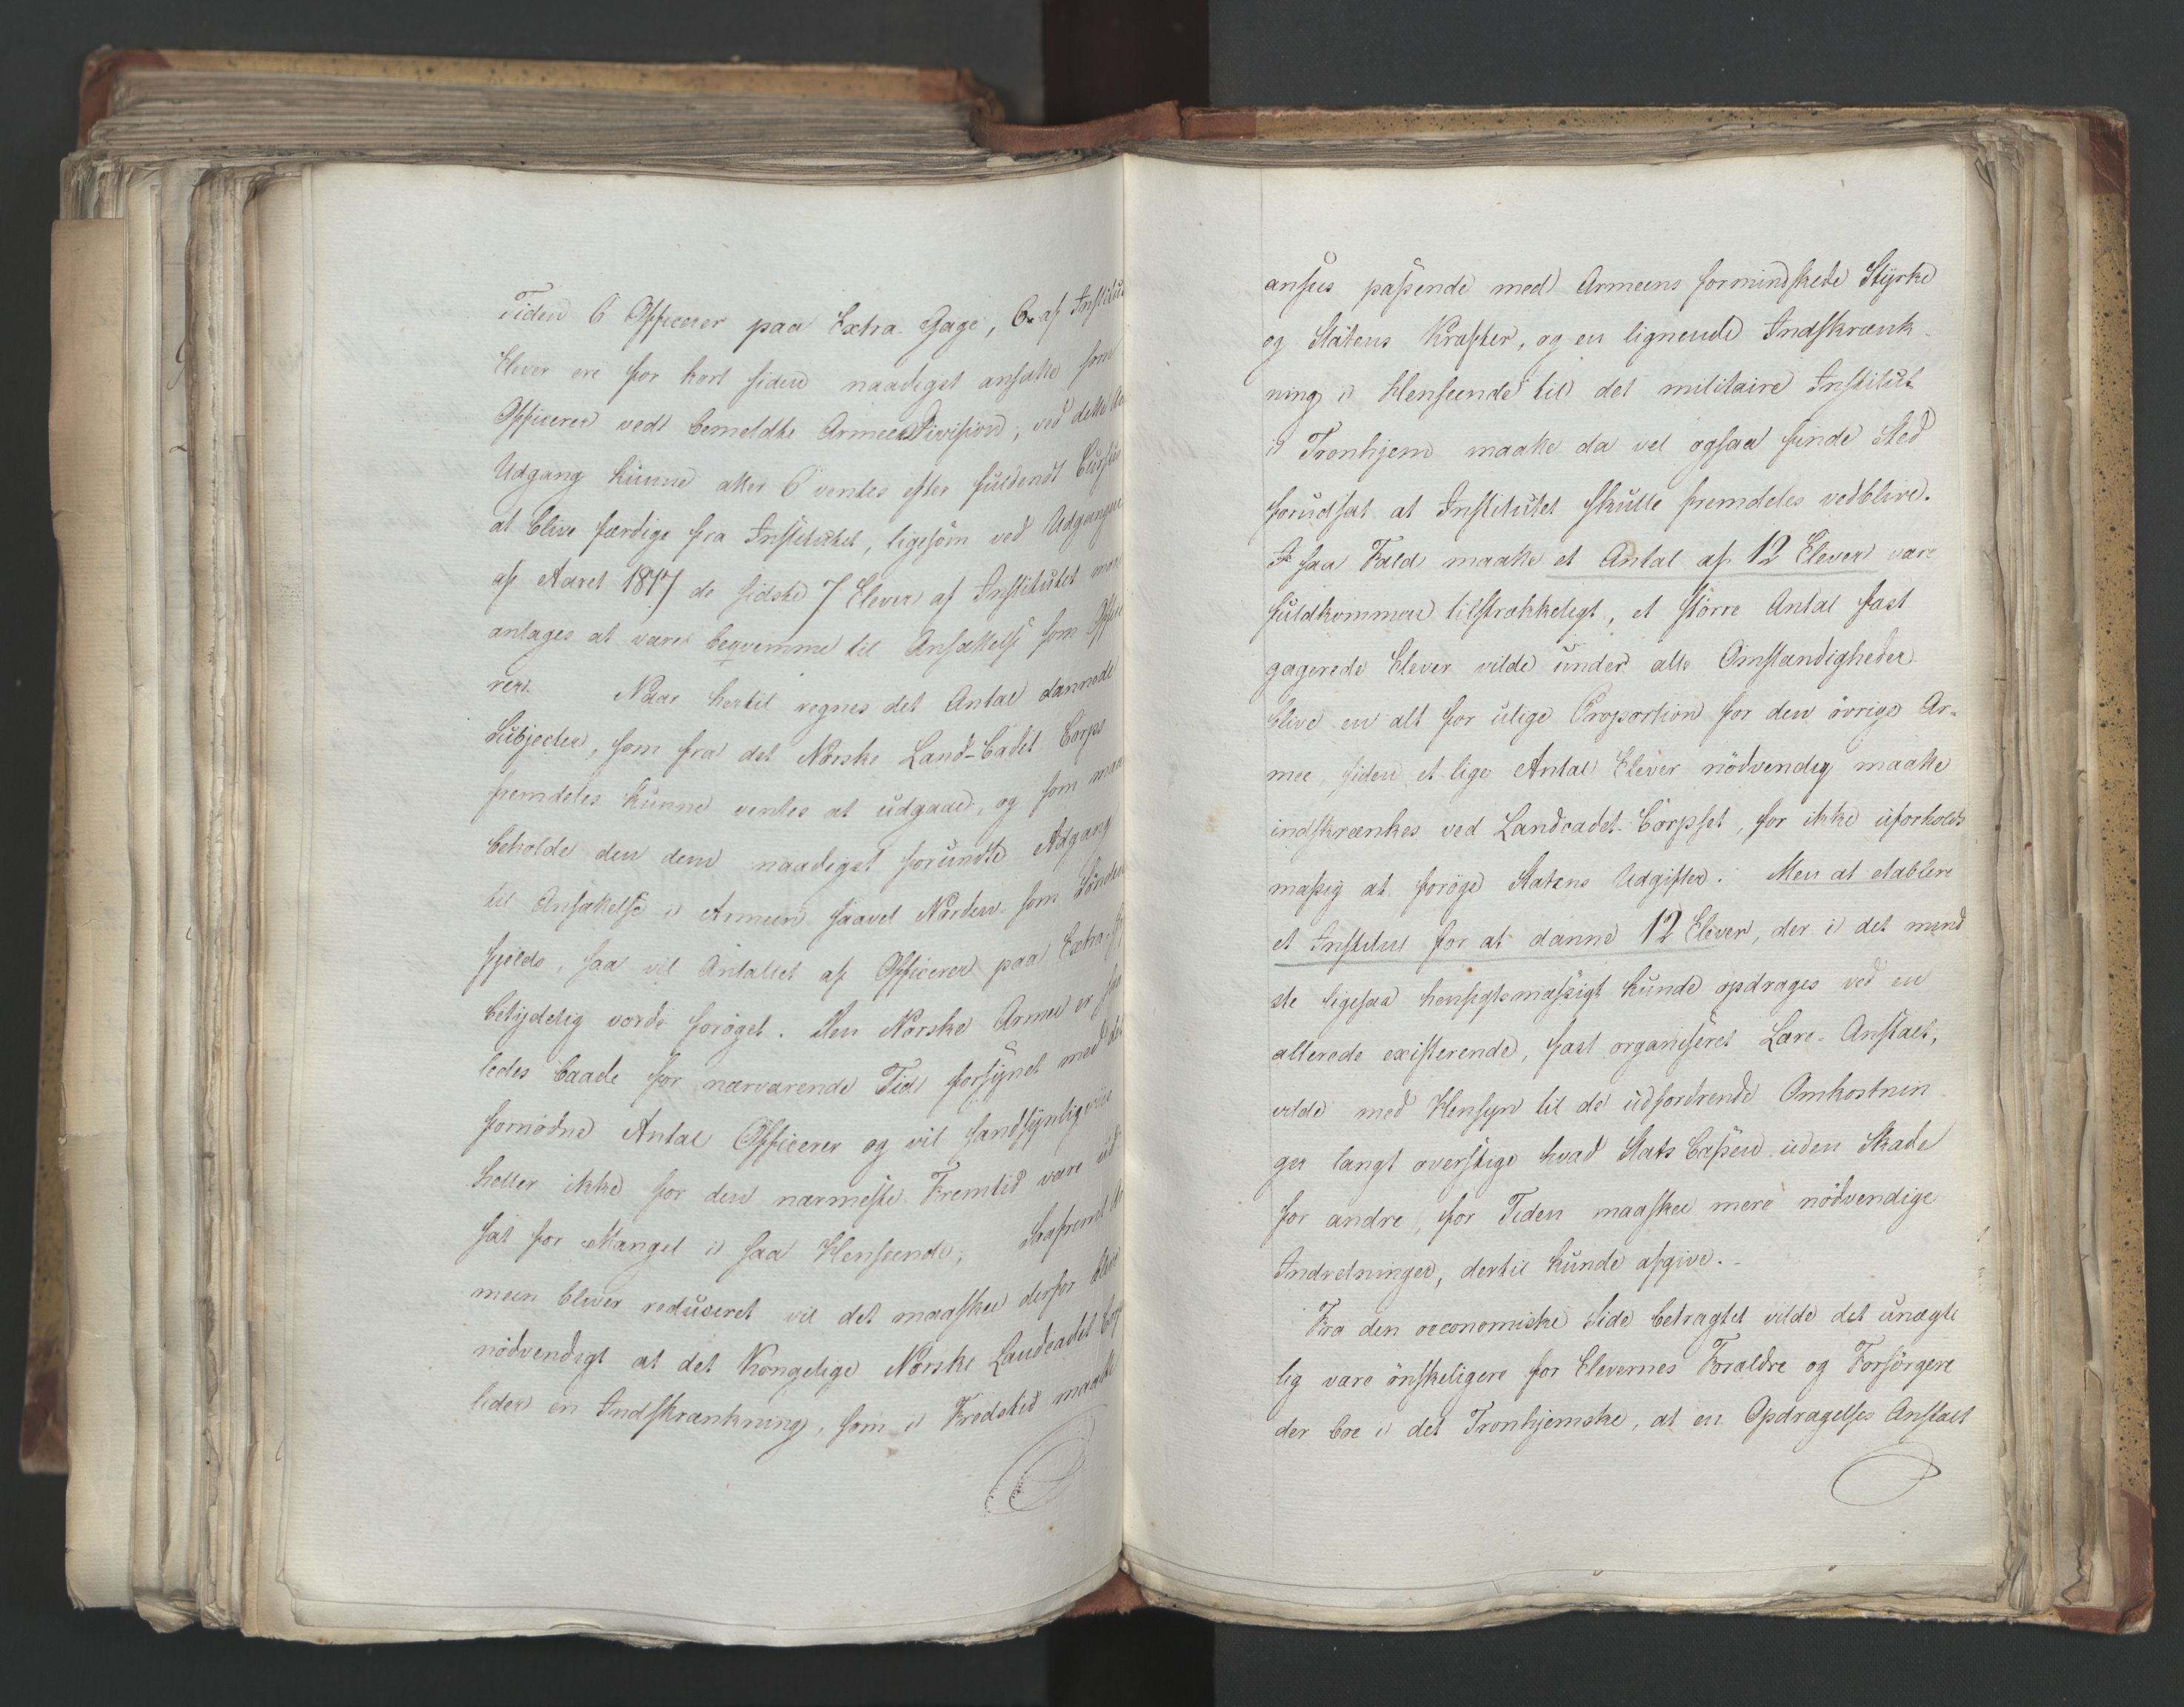 Tiden 6 Officerer paa Extra Gage, 6 af Institut
Elever ere for kort siden naadigst ansatte som
Officerer ved bemeldte Armee Division, ved dette
Udgang kunne atter 6 ventes efter fuldendt Cursus
at blive færdige fra Institutet, ligesom ved Udgangen
af Aaret 1817 de sidste 7 Elever af Institutet
antages at være beqvemme til Ansættelse som Offic
rer. Naar hertil regnes det Antal dannede
Subjecter, som fra det Norske Land-Cadet Corps
fremdeles kunne ventes at udgaae, og som maae
beholde den dem naadigst forundte Adgang
til Ansættelse i Armeen saavel Norden som Sønden
fjelds, saa vil Antallet af Officerer paa Extra
betydelig vorde forøget. Den Norske Armee er saa
ledes baade for nærværende Tid forsynet med det
fornødne Antal Officerer og vil sandsynligviis
heller ikke for den nærmeste Fremtid være ud
sat for Mangel i saa Henseende; Saafremt Ar
meen bliver reduceret vil det maaskee derfor blive
nødvendigt at det Kongelige Norske Landcadet Corps
lider en Indskrænkning, som i Fredstid maatte
ansees passende med Armeens formindskede Styrke
og Statens Kræfter, og en lignende Indskrænk-
ning i Henseende til det militaire Institut
i Tronhjem maatte da vel ogsaa finde Sted
forudsat at Institutet skulle fremdeles vedblive.
I saa Fald maatte et Antal af 12 Elever være
fuldkommen tilstrækkeligt, et større Antal fast
gagerede Elever vilde under alle Omstændigheder
blive en alt for ulige Proportion for den øvrige Ar-
mee, siden et lige Antal Elever nødvendig maatte
indskrænkes ved Landcadet-Corpset, for ikke uforholds
mæssig at forøge Statens Udgifter. Men at etablere
et Institut for at danne 12 Elever, der i det mind
ste ligesaa hensigtsmæssigt kunde opdrages ved en
allerede existerende, fast organiseret Lære-Anstalt,
vilde med Hensyn til de udfordrende Omkostnin
ger langt overstige hvad Stats Cassen uden Skade
for andre, for Tiden maaskee mere nødvendige
Indretninger, dertil kunde afgive.-
Fra den oeconomiske Side betragtet vilde det unægte
lig være ønskeligere for Elevernes Forældre og Forsørgere
der boe i det Tronhjemske, at en Opdragelses Anstalt